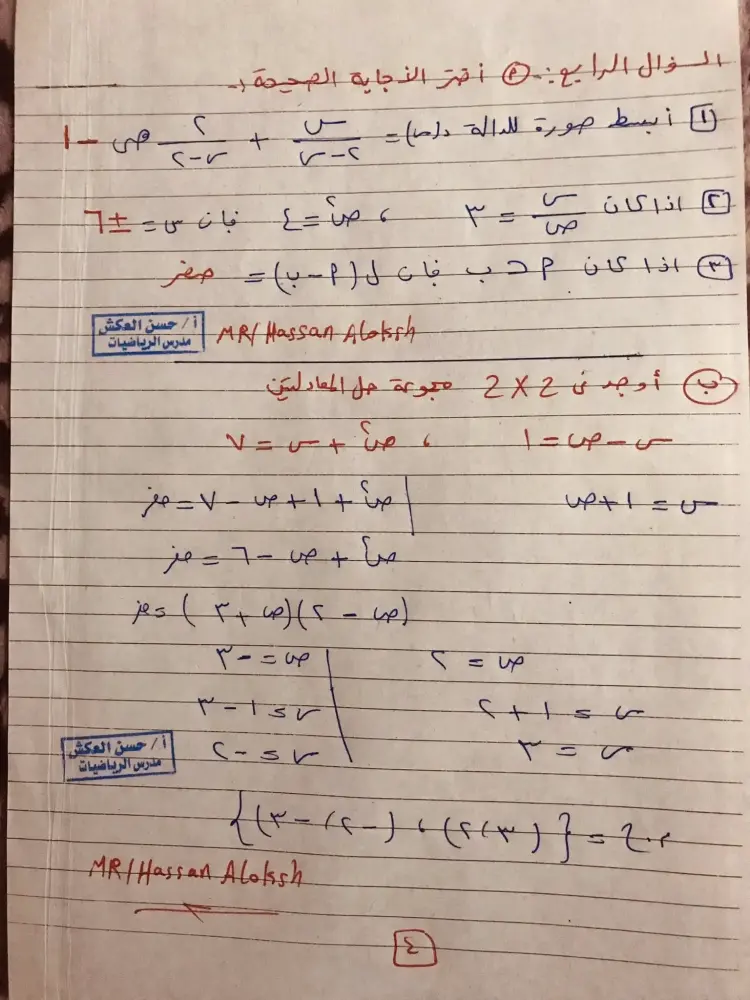 السؤال الرابع:- (٢) أختر الاجابة الصحيحة:-
[١] أبسط صورة للدالة د(س) = س/(٢-س) + ٢/(س-٢) هى -١
[٢] اذا كان س/ص = ٣ ، ص٢ = ٤ فإن س = ±٦
[٣] اذا كان ٢ ⊂ ب فان ل(٢-ب) = صفر
أ/ حسن العكش
مدرس الرياضيات
MR/Hassan Aloksh
(ب) أوجد فى 2 X 2 مجموعة حل المعادلتين
س - ص = ١ ، ص٢ + س = ٧
س = ١ + ص | ص٢ + ١ + ص - ٧ = صفر
ص٢ + ص - ٦ = صفر
(ص - ٢)(ص + ٣) = صفر
ص = ٢ | ص = -٣
س = ١ + ٢ | س = ١ - ٣
س = ٣ | س = -٢
أ/ حسن العكش
مدرس الرياضيات
م.ح = {(٣,٢) ، (-٢,-٣)}
MR/Hassan Aloksh
٤